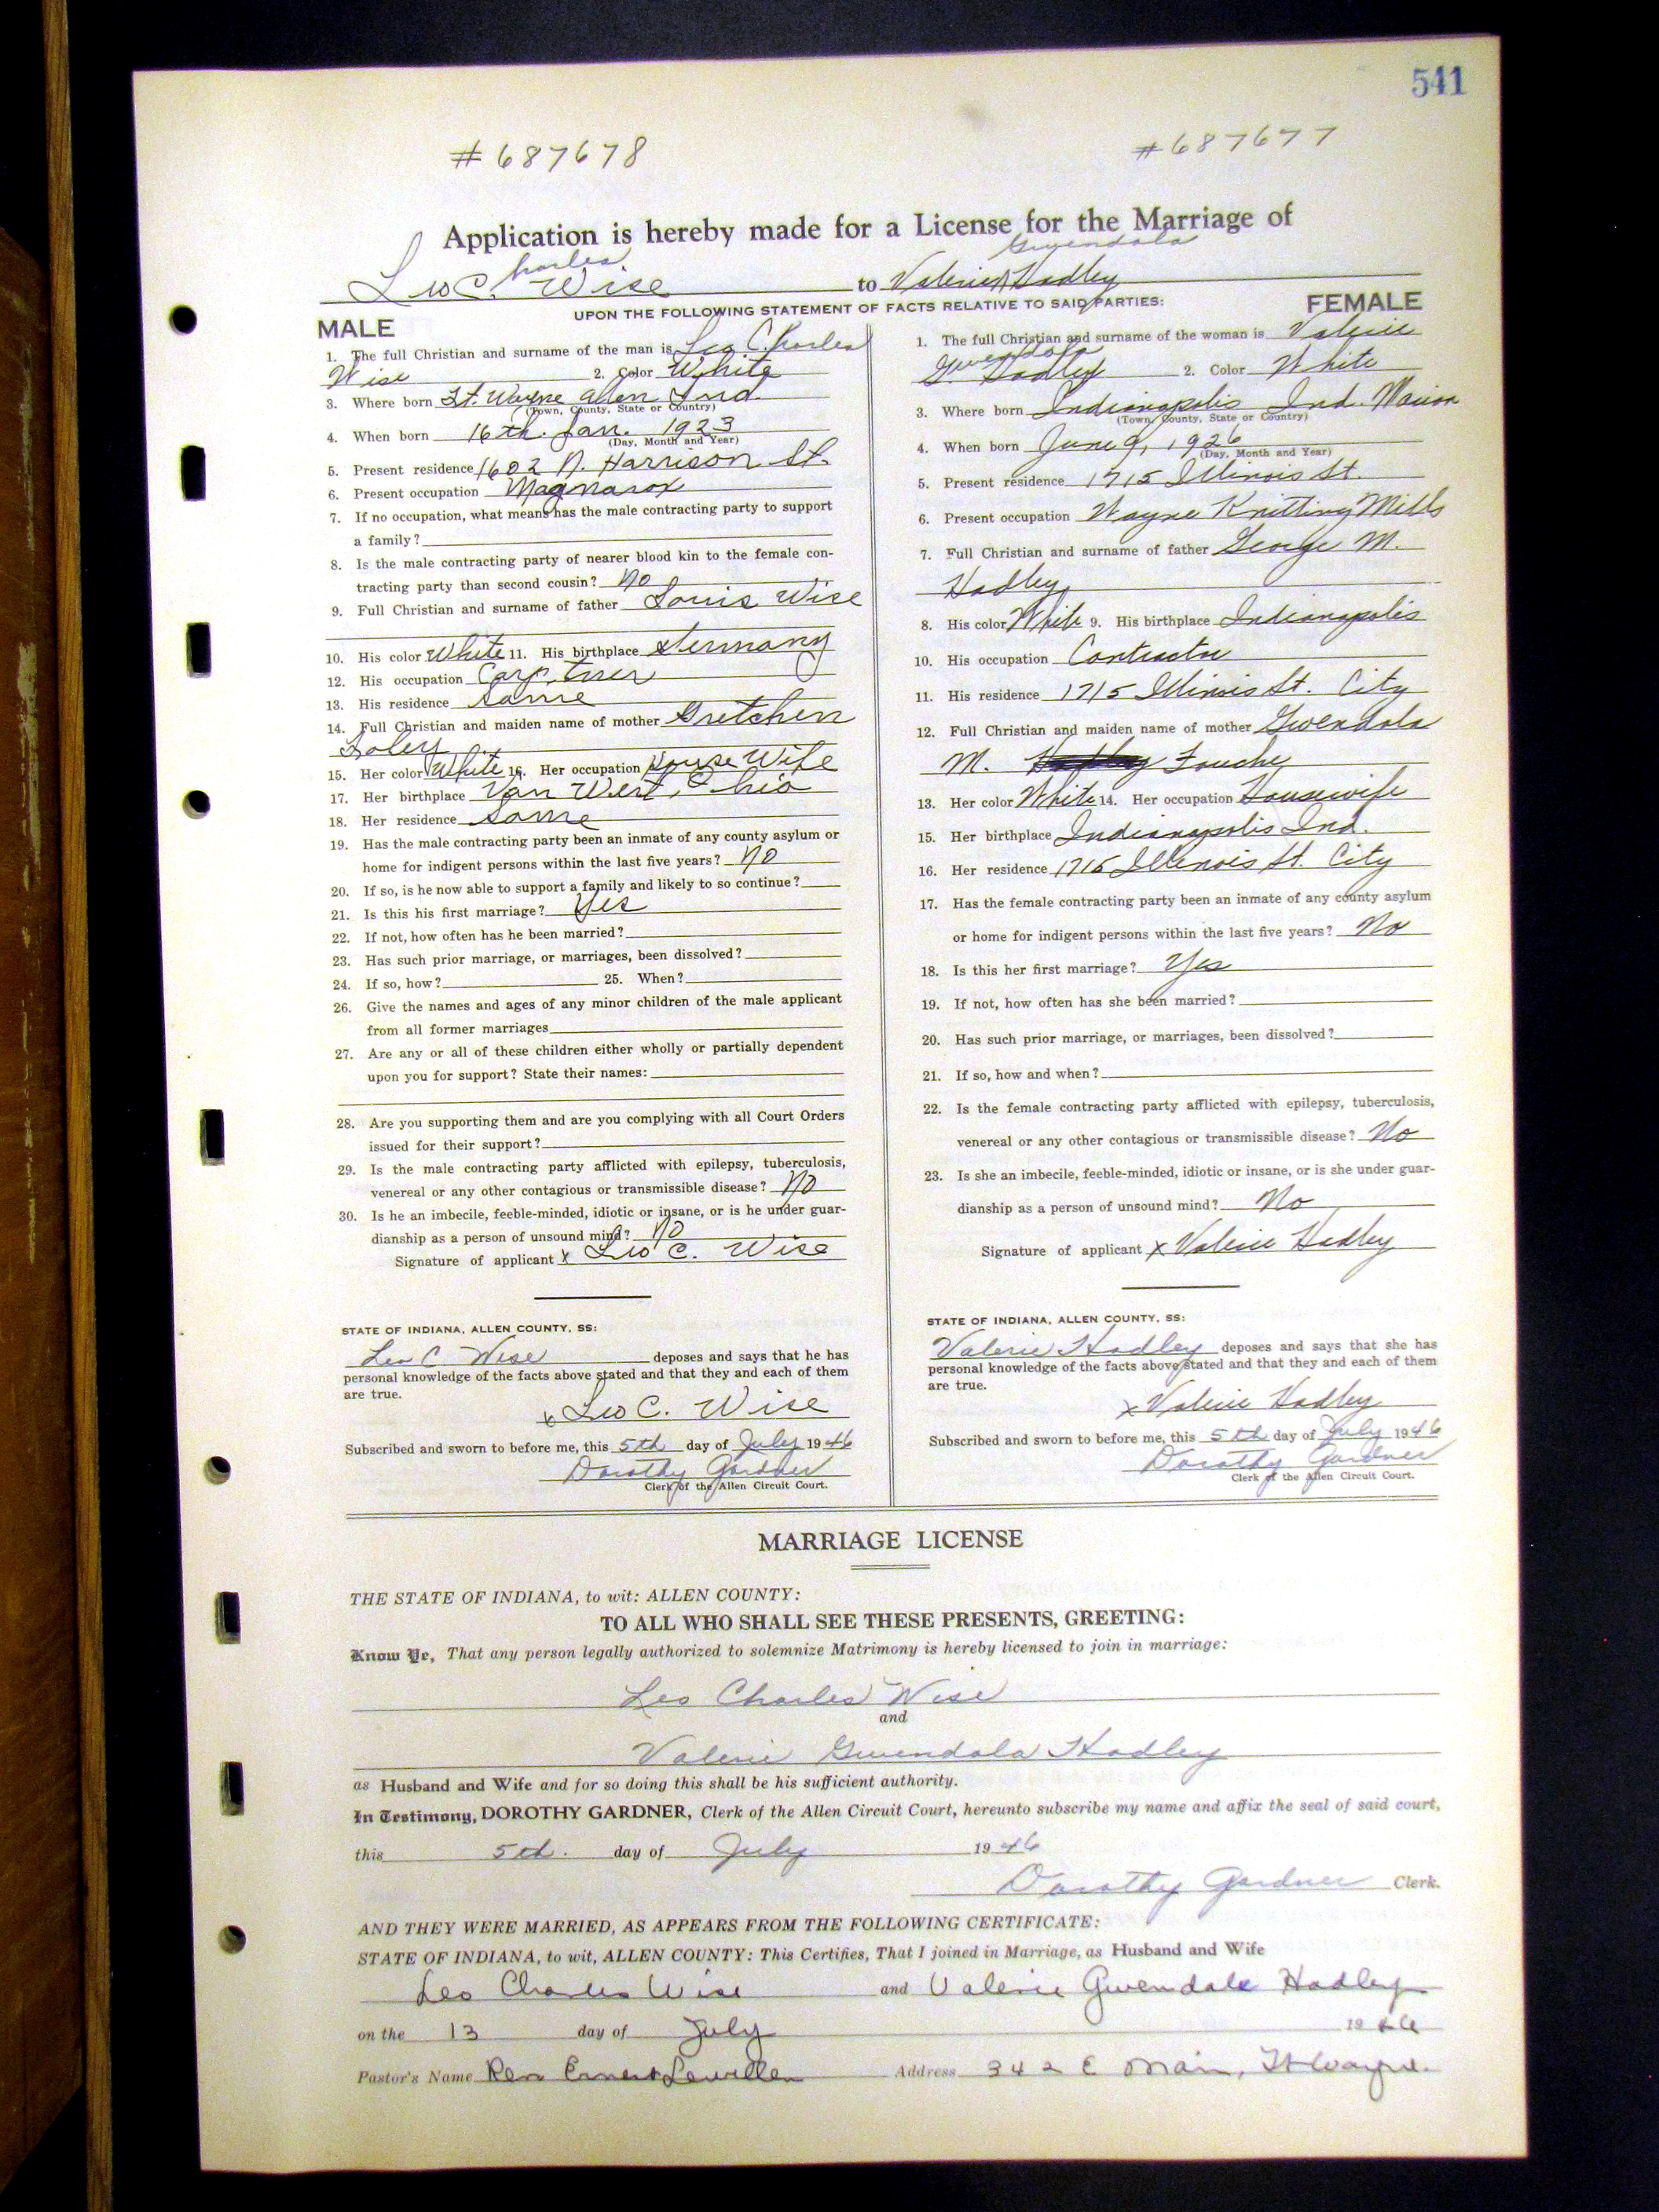 541
#687678 #687677
Application is hereby made for a License for the Marriage of
Charles Gwendola
Leo C. Wise to Valerie Hadley
UPON THE FOLLOWING STATEMENT OF FACTS RELATIVE TO SAID PARTIES:
MALE
1. The full Christian and surname of the man is Leo Charles
Wise 2. Color White
3. Where born Ft. Wayne Allen Ind.
(Town, County, State or Country)
4. When born 16th. Jan. 1923
(Day, Month and Year)
5. Present residence 1602 N. Harrison St.
6. Present occupation Magnavox
7. If no occupation, what means has the male contracting party to support
a family?
8. Is the male contracting party of nearer blood kin to the female con-
tracting party than second cousin? No
9. Full Christian and surname of father Louis Wise
10. His color White 11. His birthplace Germany
12. His occupation
13. His residence Same
14. Full Christian and maiden name of mother Gretchen
15. Her color White 16. Her occupation House Wife
17. Her birthplace Van Wert, Ohio
18. Her residence Same
19. Has the male contracting party been an inmate of any county asylum or
home for indigent persons within the last five years? No
20. If so, is he now able to support a family and likely to so continue?
21. Is this his first marriage? Yes
22. If not, how often has he been married?
23. Has such prior marriage, or marriages, been dissolved?
24. If so, how? 25. When?
26. Give the names and ages of any minor children of the male applicant
from all former marriages
27. Are any or all of these children either wholly or partially dependent
upon you for support? State their names:
28. Are you supporting them and are you complying with all Court Orders
issued for their support?
29. Is the male contracting party afflicted with epilepsy, tuberculosis,
venereal or any other contagious or transmissible disease? No
30. Is he an imbecile, feeble-minded, idiotic or insane, or is he under guar-
dianship as a person of unsound mind? No
Signature of applicant x Leo C. Wise
STATE OF INDIANA, ALLEN COUNTY, SS:
Leo C Wise deposes and says that he has
personal knowledge of the facts above stated and that they and each of them
are true.
x Leo C. Wise
Subscribed and sworn to before me, this 5th day of July 1946
Dorothy Gardner
Clerk of the Allen Circuit Court.
FEMALE
1. The full Christian and surname of the woman is Valerie
Gwendola
G. Hadley 2. Color White
3. Where born Indianapolis Ind. Marion
(Town, County, State or Country)
4. When born June 9, 1926
(Day, Month and Year)
5. Present residence 1715 Illinois St.
6. Present occupation Wayne Knitting Mills
7. Full Christian and surname of father George M.
Hadley
8. His color White 9. His birthplace Indianapolis
10. His occupation Contractor
11. His residence 1715 Illinois St. City
12. Full Christian and maiden name of mother Gwendola
M. Fouche
13. Her color White 14. Her occupation Housewife
15. Her birthplace Indianapolis Ind.
16. Her residence 1715 Illinois St. City
17. Has the female contracting party been an inmate of any county asylum
or home for indigent persons within the last five years? No
18. Is this her first marriage? Yes
19. If not, how often has she been married?
20. Has such prior marriage, or marriages, been dissolved?
21. If so, how and when?
22. Is the female contracting party afflicted with epilepsy, tuberculosis,
venereal or any other contagious or transmissible disease? No
23. Is she an imbecile, feeble-minded, idiotic or insane, or is she under guar-
dianship as a person of unsound mind? No
Signature of applicant x Valerie Hadley
STATE OF INDIANA, ALLEN COUNTY, SS:
Valerie Hadley deposes and says that she has
personal knowledge of the facts above stated and that they and each of them
are true.
x Valerie Hadley
Subscribed and sworn to before me, this 5th day of July 1946
Dorothy Gardner
Clerk of the Allen Circuit Court.
MARRIAGE LICENSE
THE STATE OF INDIANA, to wit: ALLEN COUNTY:
TO ALL WHO SHALL SEE THESE PRESENTS, GREETING:
Know Ye, That any person legally authorized to solemnize Matrimony is hereby licensed to join in marriage:
Leo Charles Wise
and
Valerie Gwendola Hadley
as Husband and Wife and for so doing this shall be his sufficient authority.
In Testimony, DOROTHY GARDNER, Clerk of the Allen Circuit Court, hereunto subscribe my name and affix the seal of said court,
this 5th. day of July 1946
Dorothy Gardner Clerk.
AND THEY WERE MARRIED, AS APPEARS FROM THE FOLLOWING CERTIFICATE:
STATE OF INDIANA, to wit, ALLEN COUNTY: This Certifies, That I joined in Marriage, as Husband and Wife
Leo Charles Wise and Valerie Gwendale Hadley
on the 13 day of July 1946
Pastor's Name Rev Ernest Lewellen Address 342 E Main, Ft Wayne.